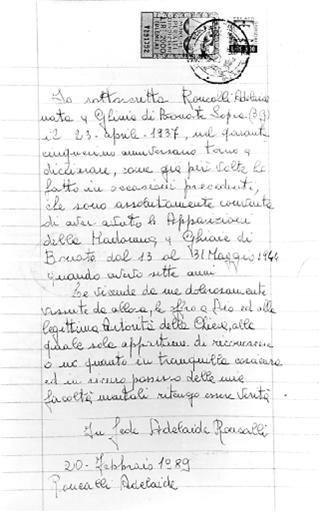 Io sottoscritta Roncalli Adelaide
nata a Ghiaie di Bonate Sopra (BG)
il 23 - aprile - 1937, nel quaranta
cinquesimo anniversario torno a
dichiarare, come già più volte ho
fatto in occasioni precedenti,
che sono assolutamente convinta
di aver avuto le Apparizioni
della Madonna, a Ghiaie di
Bonate dal 13 al 31 Maggio 1944
quando avevo sette anni
Le vicende da me dolorosamente
vissute da allora, le offro a Dio ed alla
legittima Autorità della Chiesa, alla
quale sola appartiene di riconoscere
o no quanto in tranquilla coscienza
ed in sicuro possesso delle mie
facoltà mentali ritengo essere verità.
In fede Adelaide Roncalli
20 - Febbraio 1989
Roncalli Adelaide